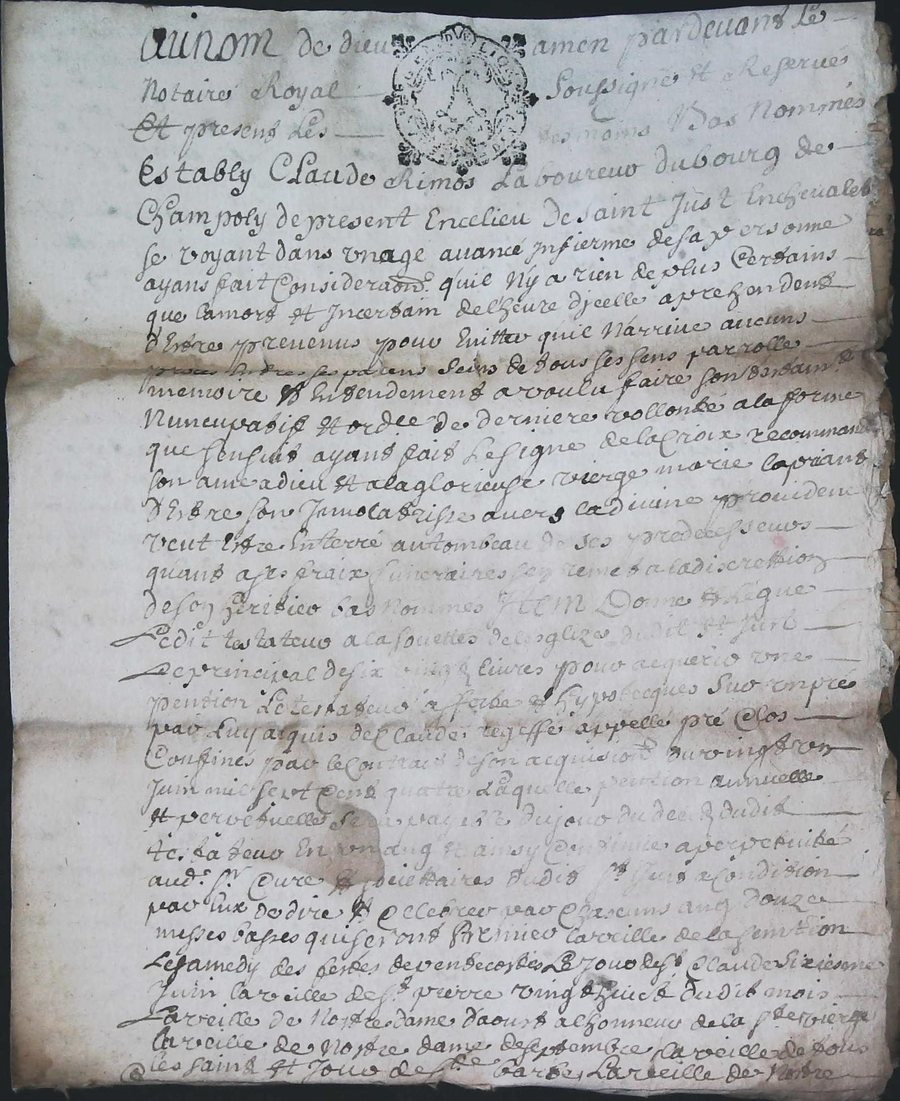 au nom de dieu amen pardevant Le
Notaire Royal Soussigné et Reservé
Et present Les tesmoins Bas Nommés
Estably CLaude Rimos Laboureur du bourg de
Champoly de present En ce lieu De Saint Just En chevalet
se voyant dans vn age avancé Infierme de sa personne
ayans fait Consideraon quil Ny a rien de plus Certains
que la mort et Incertain de lheure dycelle aprehendent
d'Estre prevenus pour Evitter quil N'arrive aucuns
proces Entre ses parens Seins de tous ses sens parrolle
memoire et Entendement a voulu faire son testamt
Nuncupatif et ordce de derniere vollonté a la forme
que sensuit ayant fait Le signe de la Croix recommandé
son ame a dieu et a la glorieuse vierge marie la priant
d'Estre son avers la divine providence
veut Estre Enterré au tombeau de ses predecesseurs
quant a ses fraix funeraires sen remet a la discrettion
de son heritier bas Nommés Item Donne et Legue
Ledit testateur a la de leglize dudit st Just
Le principal de six vingt livres pour acquerir vne
pention Le testateur affecte et hypotecques sur vn pré
par Luy acquis de Claude appellé pré Clos
Confinés par le Contrait de son acquision du vingt vn
Juin mil sept cent quatre Laquelle pention annuelle
et perpetuelle sera payable du jour du deces dudit
testateur En vn ans et ainsy Continüe a perpetuité
audt sr Curé et societtaires dudit st Just a Condition
par Eux de dire et Cellebrer par Chascuns ans Douze
messes basses qui seront premier la veille de
Le samedy des festes de pentecostes Le Jour de st Claude sixiesme
Juin la veille de st pierre vingt huict dudit mois
La veille de Nostre dame daoust a lhonneur de la ste vierge
la veille de Nostre dame de septembre la veille de tous
les saint et Jour de ste barbe La veille de Nostre